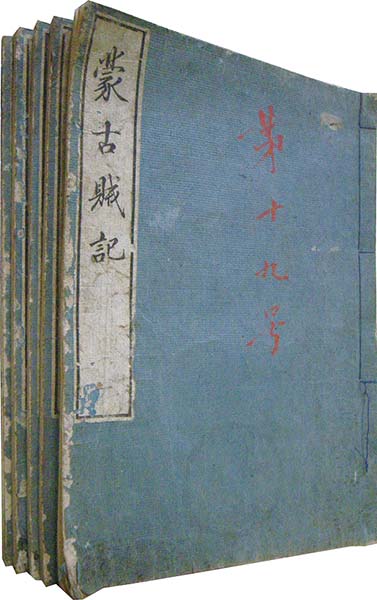 蒙古賊記
第十九号